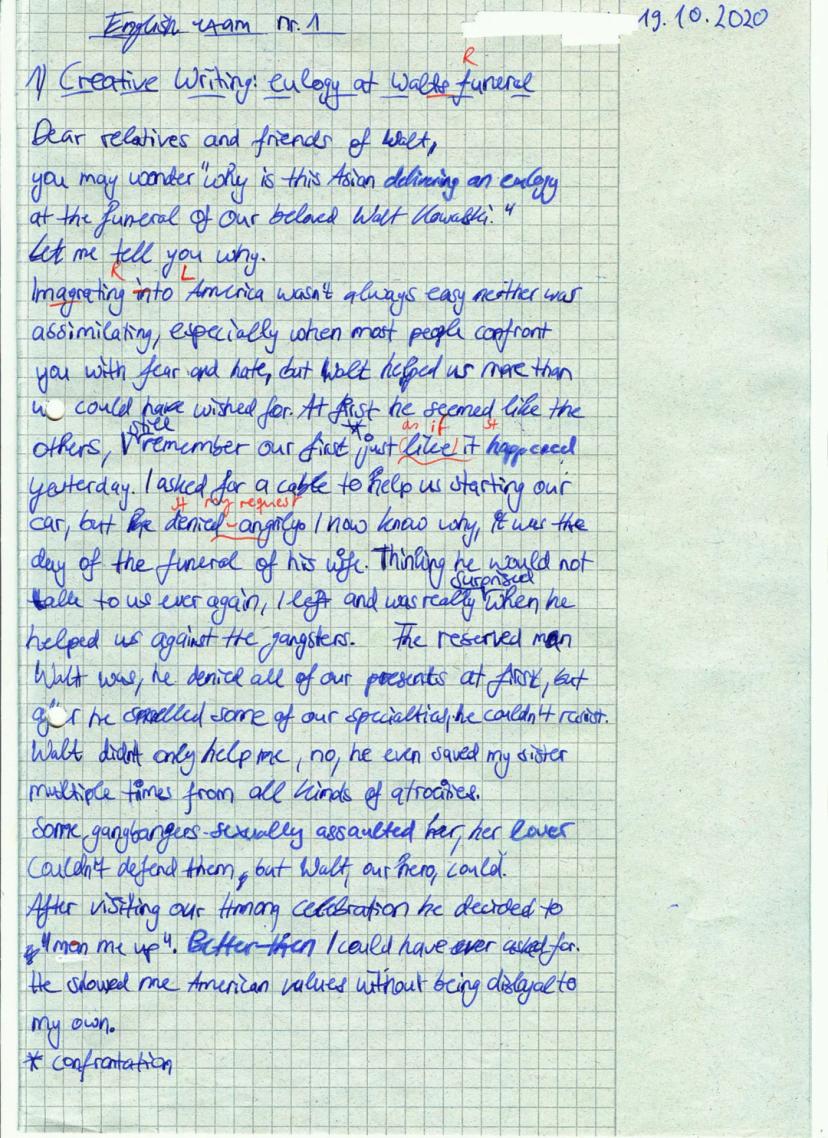 English exam nr. 1
19.10.2020
R
1) Creative Writing: eulogy at Walts funeral
Dear relatives and friends of Walt,
you may wonder "why is this Asian delivering an eulogy
at the funeral of our beloved Walt Kowalski."
Let me tell you why.
R L
Imagrating into America wasn't always easy neither was
assimilating, especially when most people confront
you with fear and hate, but Walt helped us more than
we could have wished for. At first he seemed like the
still * as if st
others, I remember our first just like it happened
yesterday. I asked for a cable to help us starting our
st my request
car, but he denied angrily I now know why, it was the
day of the funeral of his wife. Thinking he would not
surprised
talk to us ever again, I left and was really when he
helped us against the gangsters. The reserved man
Walt was, he denied all of our presents at first, but
after he smelled some of our specialties, he couldn't resist.
Walt didn't only help me, no, he even saved my sister
multiple times from all kinds of atrocities.
Some gangbangers sexually assaulted her, her lover
couldn't defend them, but Walt, our hero, could.
After visiting our Hmong celebration he decided to
"man me up". Better then I could have ever asked for.
He showed me American values without being disloyal to
my own.
* confrontation